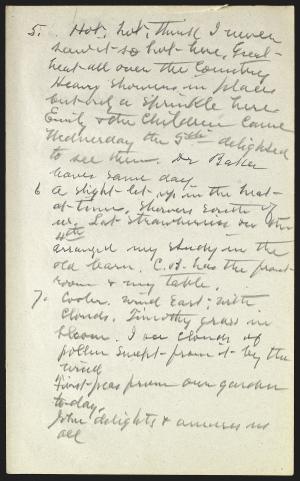 5. Hot, hot; think I never
saw it so hot here. Great
heat all over the Country
Heavy showers in places
but only a sprinkle here
Emily & the Children came
Wednesday the 5th delighted
to see them. Dr Baker
leaves same day
6 A slight let up in the heat
at times. Showers South of
us. Last strawberries on the
4th
arranged my study in the
old barn. C.B. has the front
room & my table.
7. Cooler. wind East; with
Clouds. Timothy grass in
bloom. I see clouds of
pollen swept from it by the
wind
First peas from our garden
to-day.
John delights & amuses us
all